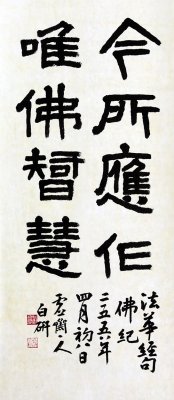 今所應作
唯佛智慧
法華經句
佛紀
二五五六年
四月初八日
人
白研